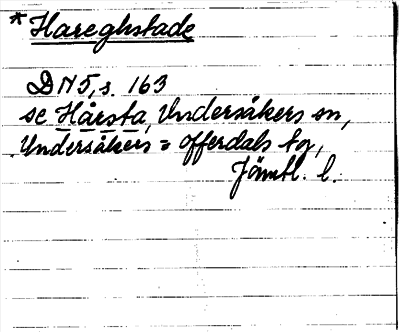 * Hareghstade
DN 5, s. 163
se Hårsta, Undersåkers sn,
Undersåkers = Offerdals tg,
Jämtl. l.